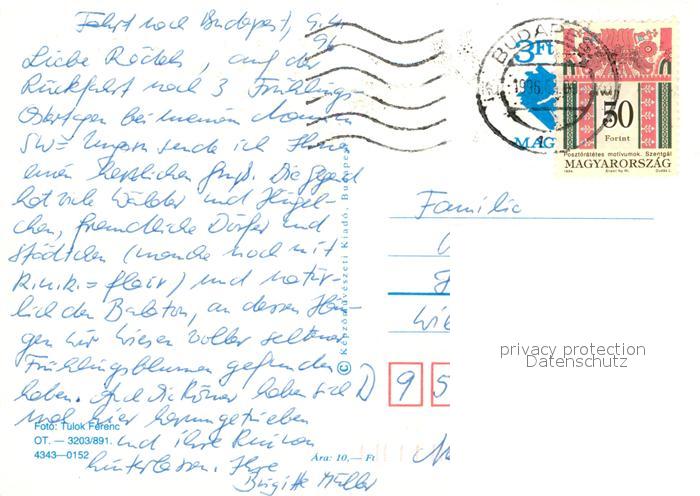 Fahrt nach Budapest, 9.4.
96
Liebe Rödels, auf der
Rückfahrt nach 3 Frühlings-
Ostertagen bei meinem
SW-Ungarn sende ich Ihnen
einen herzlichen Gruß. Die Gegend
hat viele Wälder und Hügel-
chen, freundliche Dörfer und
Städtchen (manche noch mit
k.u.k.=flair) und natür-
lich den Balaton, an dessen Hän-
gen wir Wiesen voller seltener
Frühlingsblumen gefunden
haben. Auch die Römer haben sich
mal hier herumgetrieben
und ihre Ruinen
hinterlassen. Ihre
Brigitte Müller
Foto: Tulok Ferenc
OT. — 3203/891.
4343—0152
Ára: 10,— Ft
© Képzőművészeti Kiadó, Budapest
BUDAPEST
1996
1
3Ft
MAG
50
Forint
Posztórátétes motívumok. Szentgál
MAGYARORSZÁG
Familie
D 9 5
privacy protection
Datenschutz